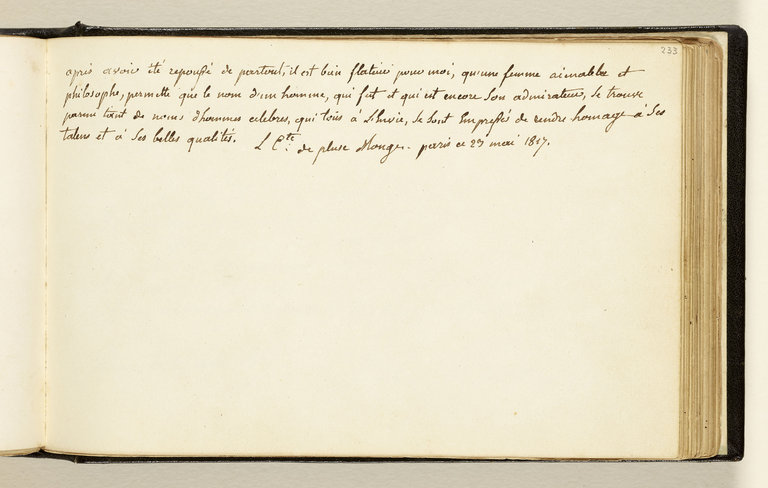 233
apris avoir été repoussé de partout, il est bien flateur pour moi, qu'une femme aimable et
philosophe, permette que le nom d'un homme, qui fut et qui est encore Son admirateur, Se trouve
parmi tant de noms d'hommes celebres, qui tous à L'Envie, Se Sont Empressé de rendre homage a Ses
talens et à Ses belles qualités. L Cte de peluse Monge. paris ce 23 mai 1817.